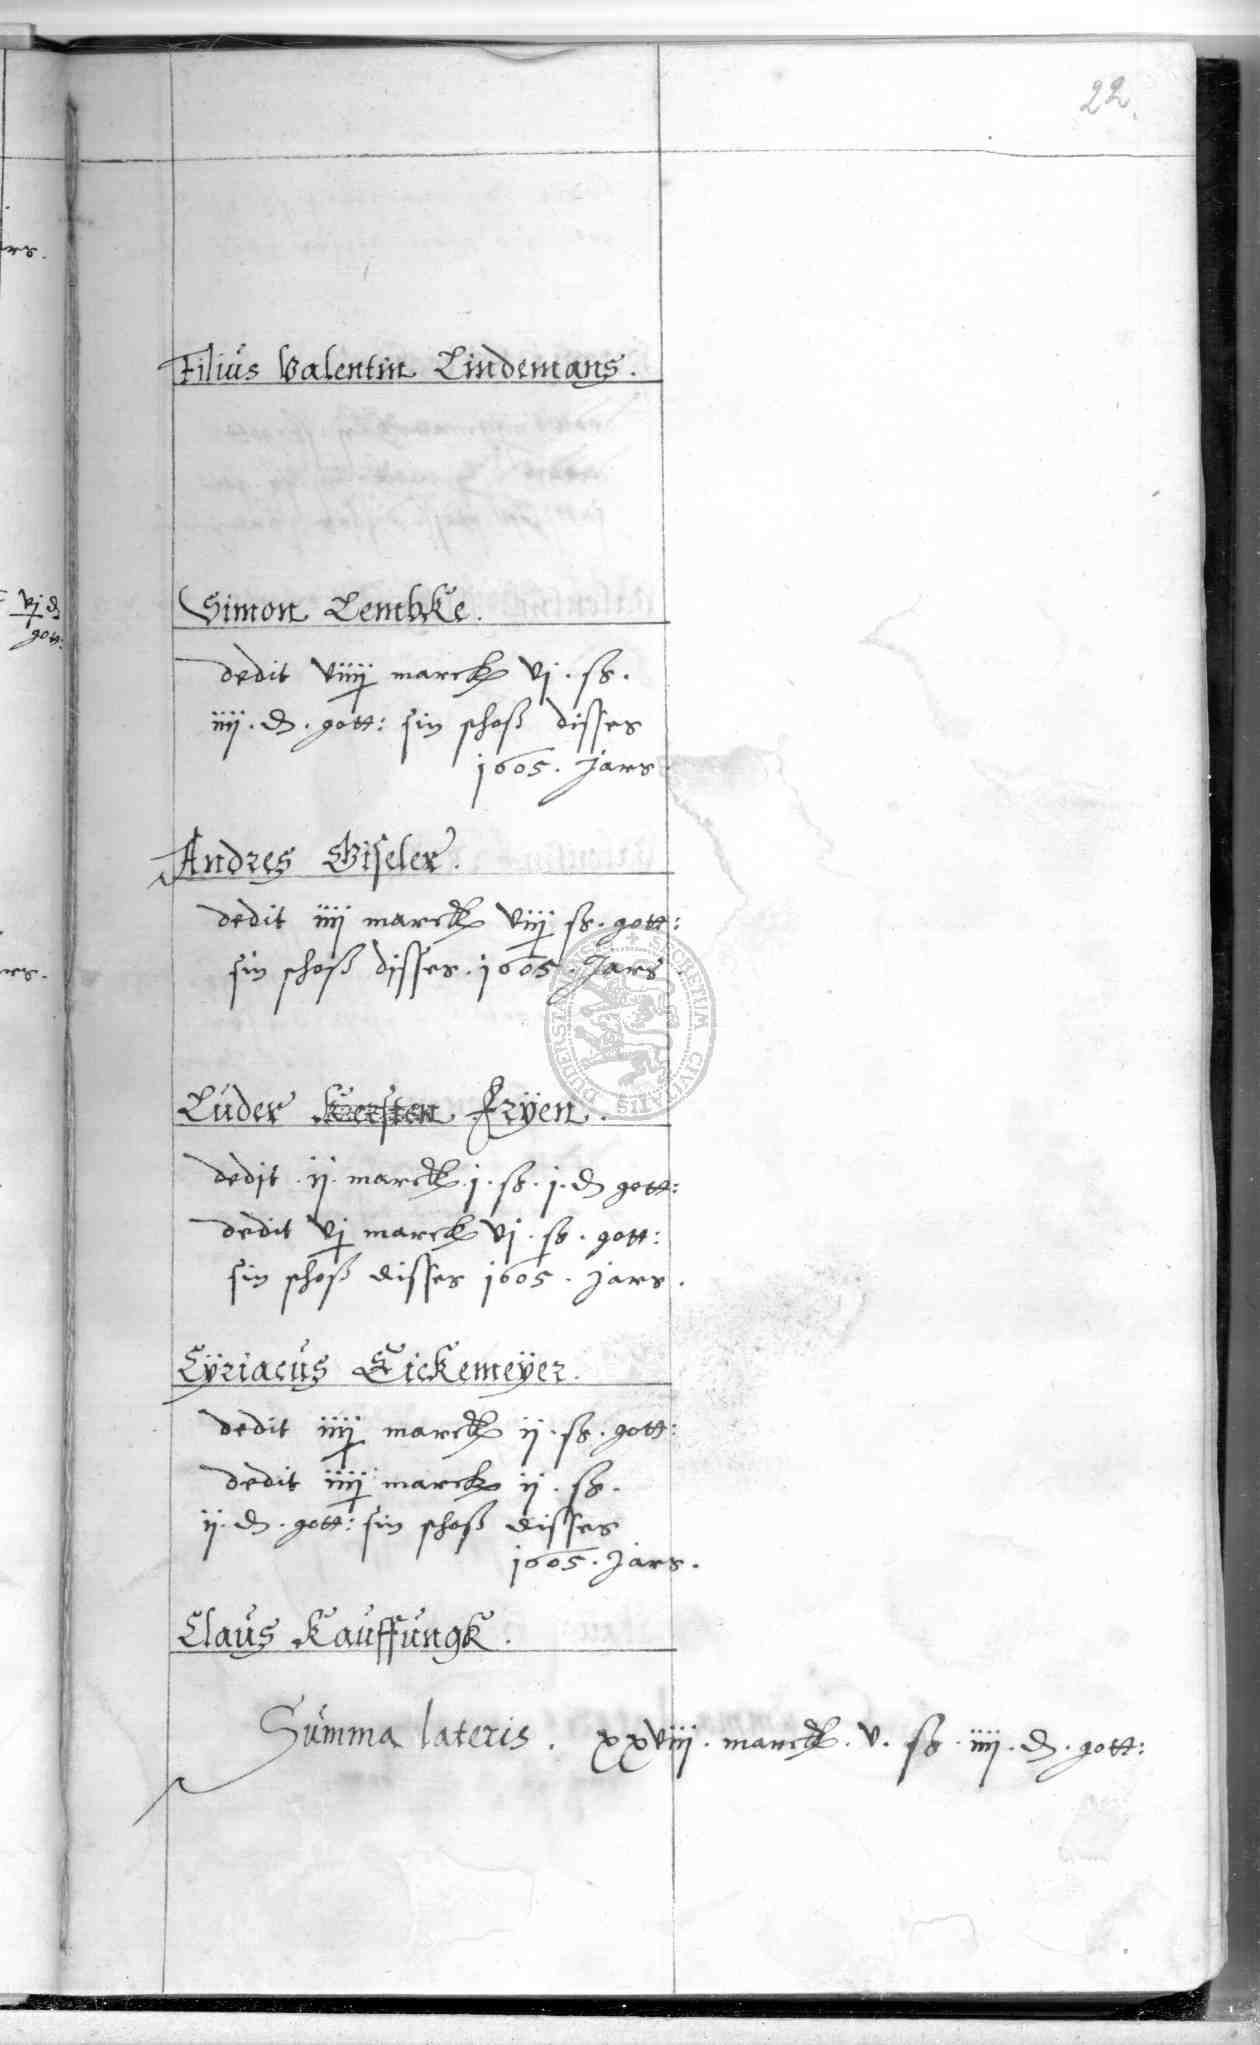 22.
Filius Valentin Lindemans.
Simon Lembke.
dedit viiij marck vj . ß .
iiij . d . gott: sin schoß disses
1605 . Jars
Andres Giseler.
dedit iiij marck viiij ß . gott:
sin schoß disses . 1605 . Jars
SECRETUM CIVITATIS DUDERSTA
Luder Kersten Fryen .
dedit . ij . marck . j . ß . j . d gott:
dedit vj marck vj . ß . gott:
sin schoß disses 1605 . Jars .
Cÿriacus Eickemeÿer.
dedit iiij marck ij . ß . gott:
dedit iiij marck ij . ß .
ij . d . gott: sin schoß disses
1605 . Jars .
Claus Kauffungk .
Summa lateris . xxviij . marck . v . ß . iiij . d . gott: